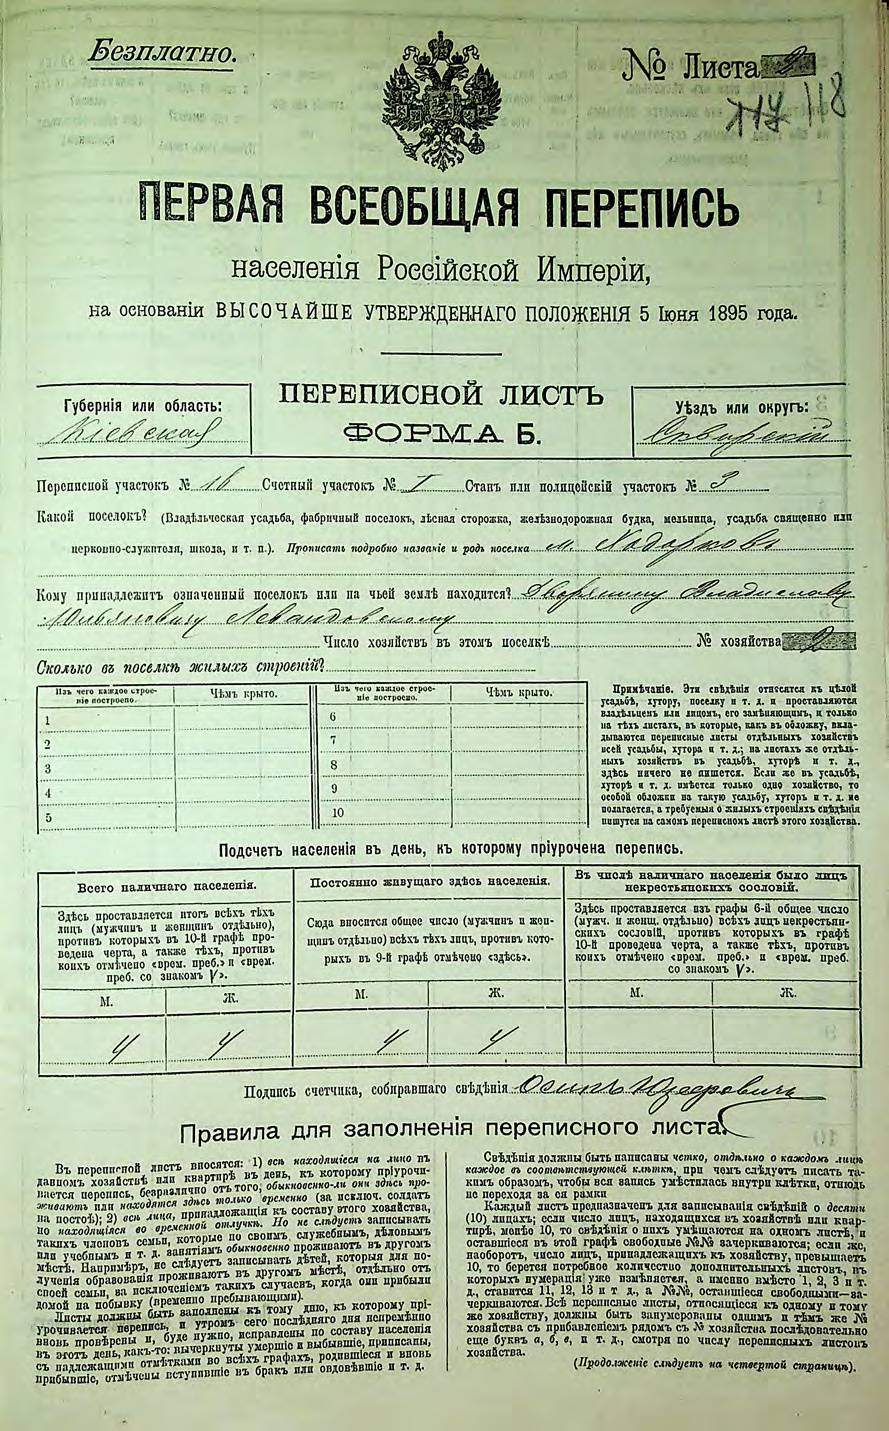 Безплатно.
№ Листа 2
117 118
ПЕРВАЯ ВСЕОБЩАЯ ПЕРЕПИСЬ
населенія Россійской Имперіи,
на основаніи ВЫСОЧАЙШЕ УТВЕРЖДЕННАГО ПОЛОЖЕНІЯ 5 Іюня 1895 года.
Губернія или область:
Кіевская
ПЕРЕПИСНОЙ ЛИСТЪ
ФОРМА Б.
Уѣздъ или округъ:
Сквирскій
Переписной участокъ № 16 Счетный участокъ № I Станъ или полицейскій участокъ № 3
Какой поселокъ? (Владѣльческая усадьба, фабричный поселокъ, лѣсная сторожка, желѣзнодорожная будка, мельница, усадьба священно или
церковно-служителя, школа, и т. п.). Прописать подробно названіе и родъ поселка м. Ходорковъ
Кому принадлежитъ означенный поселокъ или на чьей землѣ находится? Дворянину Владиславу
Юльяновичу Левандовскому
Число хозяйствъ въ этомъ поселкѣ № хозяйства 2
Сколько въ поселкѣ жилыхъ строеній?
Изъ чего каждое строе-
ніе построено.
Чѣмъ крыто.
Изъ чего каждое строе-
ніе построено.
Чѣмъ крыто.
1
2
3
4
5
6
7
8
9
10
Примѣчаніе. Эти свѣдѣнія относятся къ цѣлой
усадьбѣ, хутору, поселку и т. д. и проставляются
владѣльцемъ или лицомъ, его замѣняющимъ, и только
на тѣхъ листахъ, въ которые, какъ въ обложку, вкла-
дываются переписные листы отдѣльныхъ хозяйствъ
всей усадьбы, хутора и т. д.; на листахъ же отдѣль-
ныхъ хозяйствъ въ усадьбѣ, хуторѣ и т. д.,
здѣсь ничего не пишется. Если же въ усадьбѣ,
хуторѣ и т. д. имѣется только одно хозяйство, то
особой обложки на такую усадьбу, хуторъ и т. д. не
полагается, а требуемыя о жилыхъ строеніяхъ свѣдѣнія
пишутся на самомъ переписномъ листѣ этого хозяйства.
Подсчетъ населенія въ день, къ которому пріурочена перепись.
Всего наличнаго населенія.
Здѣсь проставляется итогъ всѣхъ тѣхъ
лицъ (мужчинъ и женщинъ отдѣльно),
противъ которыхъ въ 10-й графѣ про-
ведена черта, а также тѣхъ, противъ
коихъ отмѣчено «врем. преб.» и «врем.
преб. со знакомъ V».
М. Ж.
4 4
Постоянно живущаго здѣсь населенія.
Сюда вносится общее число (мужчинъ и жен-
щинъ отдѣльно) всѣхъ тѣхъ лицъ, противъ кото-
рыхъ въ 9-й графѣ отмѣчено «здѣсь».
М. Ж.
4 4
Въ числѣ наличнаго населенія было лицъ
некрестьянскихъ сословій.
Здѣсь проставляется изъ графы 6-й общее число
(мужч. и женщ. отдѣльно) всѣхъ лицъ некрестьян-
скихъ сословій, противъ которыхъ въ графѣ
10-й проведена черта, а также тѣхъ, противъ
коихъ отмѣчено «врем. преб.» и «врем. преб.
со знакомъ V».
М. Ж.
Подпись счетчика, собиравшаго свѣдѣнія Осипъ
Правила для заполненія переписного листа.
Въ переписной листъ вносятся: 1) всѣ находящіеся на лицо въ
данномъ хозяйствѣ или квартирѣ въ день, къ которому пріурочи-
вается перепись, безразлично отъ того, обыкновенно-ли они здѣсь про-
живаютъ или находятся здѣсь только временно (за исключ. солдатъ
на постоѣ); 2) всѣ лица, принадлежащія къ составу этого хозяйства,
но находящіяся во временной отлучкѣ. Но не слѣдуетъ записывать
такихъ членовъ семьи, которые по своимъ служебнымъ, дѣловымъ
или учебнымъ и т. д. занятіямъ обыкновенно проживаютъ въ другомъ
мѣстѣ. Напримѣръ, не слѣдуетъ записывать дѣтей, которыя для по-
лученія образованія проживаютъ въ другомъ мѣстѣ, отдѣльно отъ
своей семьи, за исключеніемъ такихъ случаевъ, когда они прибыли
домой на побывку (временно пребывающими).
Листы должны быть заполнены къ тому дню, къ которому прі-
урочивается перепись, и утромъ сего послѣдняго дня непремѣнно
вновь провѣрены и, буде нужно, исправлены по составу населенія
въ этотъ день, какъ-то: вычеркнуты умершіе и выбывшіе, приписаны,
съ надлежащими отмѣтками во всѣхъ графахъ, родившіеся и вновь
прибывшіе, отмѣчены вступившіе въ бракъ или овдовѣвшіе и т. д.
Свѣдѣнія должны быть написаны четко, отдѣльно о каждомъ лицѣ
каждое въ соотвѣтствующей клѣткѣ, при чемъ слѣдуетъ писать та-
кимъ образомъ, чтобы вся запись умѣстилась внутри клѣтки, отнюдь
не переходя за ея рамки
Каждый листъ предназначенъ для записыванія свѣдѣній о десяти
(10) лицахъ; если число лицъ, находящихся въ хозяйствѣ или квар-
тирѣ, менѣе 10, то свѣдѣнія о нихъ умѣщаются на одномъ листѣ, и
оставшіеся въ этой графѣ свободные №№ зачеркиваются; если же,
наоборотъ, число лицъ, принадлежащихъ къ хозяйству, превышаетъ
10, то берется потребное количество дополнительныхъ листовъ, въ
которыхъ нумерація уже измѣняется, а именно вмѣсто 1, 2, 3 и т.
д., ставится 11, 12, 13 и т. д., а №№, оставшіеся свободными—за-
черкиваются. Всѣ переписные листы, относящіеся къ одному и тому
же хозяйству, должны быть занумерованы однимъ и тѣмъ же №
хозяйства съ прибавленіемъ рядомъ съ № хозяйства послѣдовательно
еще буквъ а, б, в, и т. д., смотря по числу переписныхъ листовъ
хозяйства.
(Продолженіе слѣдуетъ на четвертой страницѣ).